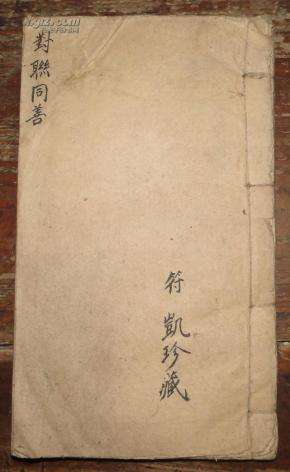 對聯同善
符凱珍藏